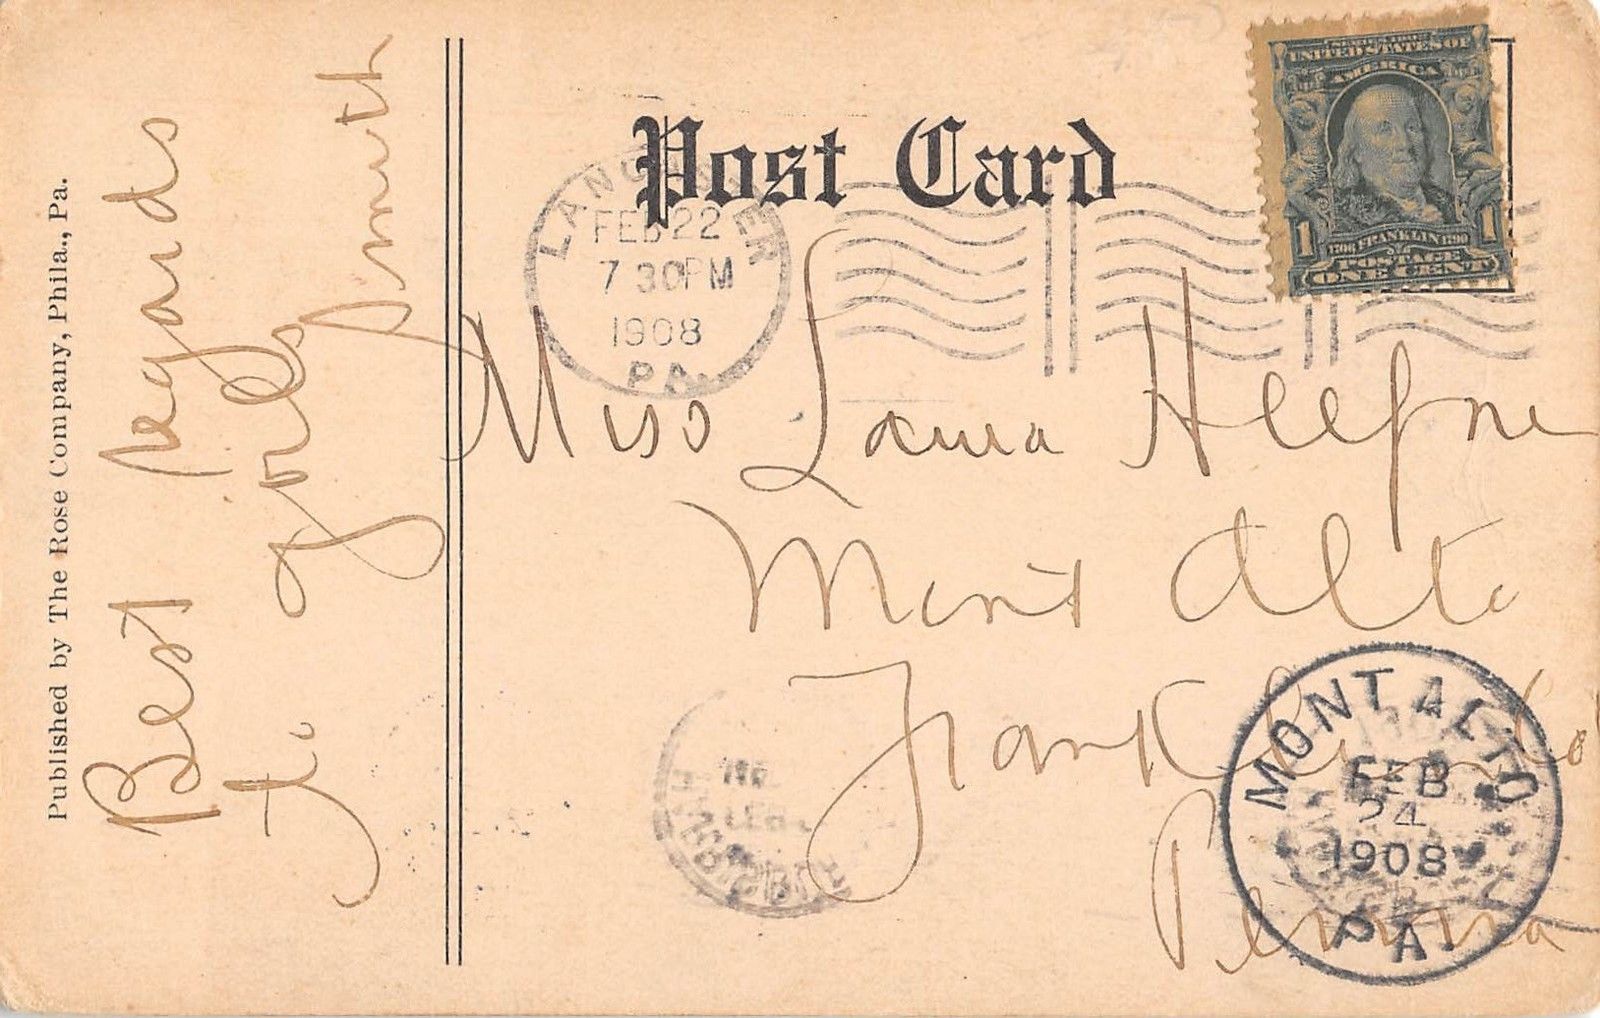 Published by The Rose Company, Phila., Pa.
Best regards
to
Smith
Post Card
UNITED STATES OF
AMERICA
1 1
FRANKLIN 1790
POSTAGE
ONE CENT
LANCASTER
FEB 22
7 30 PM
1908
PA.
Miss Laura
Mont Alto
Franklin Co
Penna
MONT ALTO
FEB
24
1908
PA.